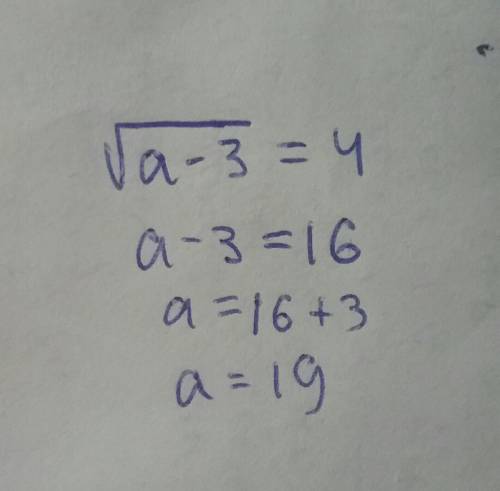 √(a-3) = 4
a-3 = 16
a = 16+3
a = 19